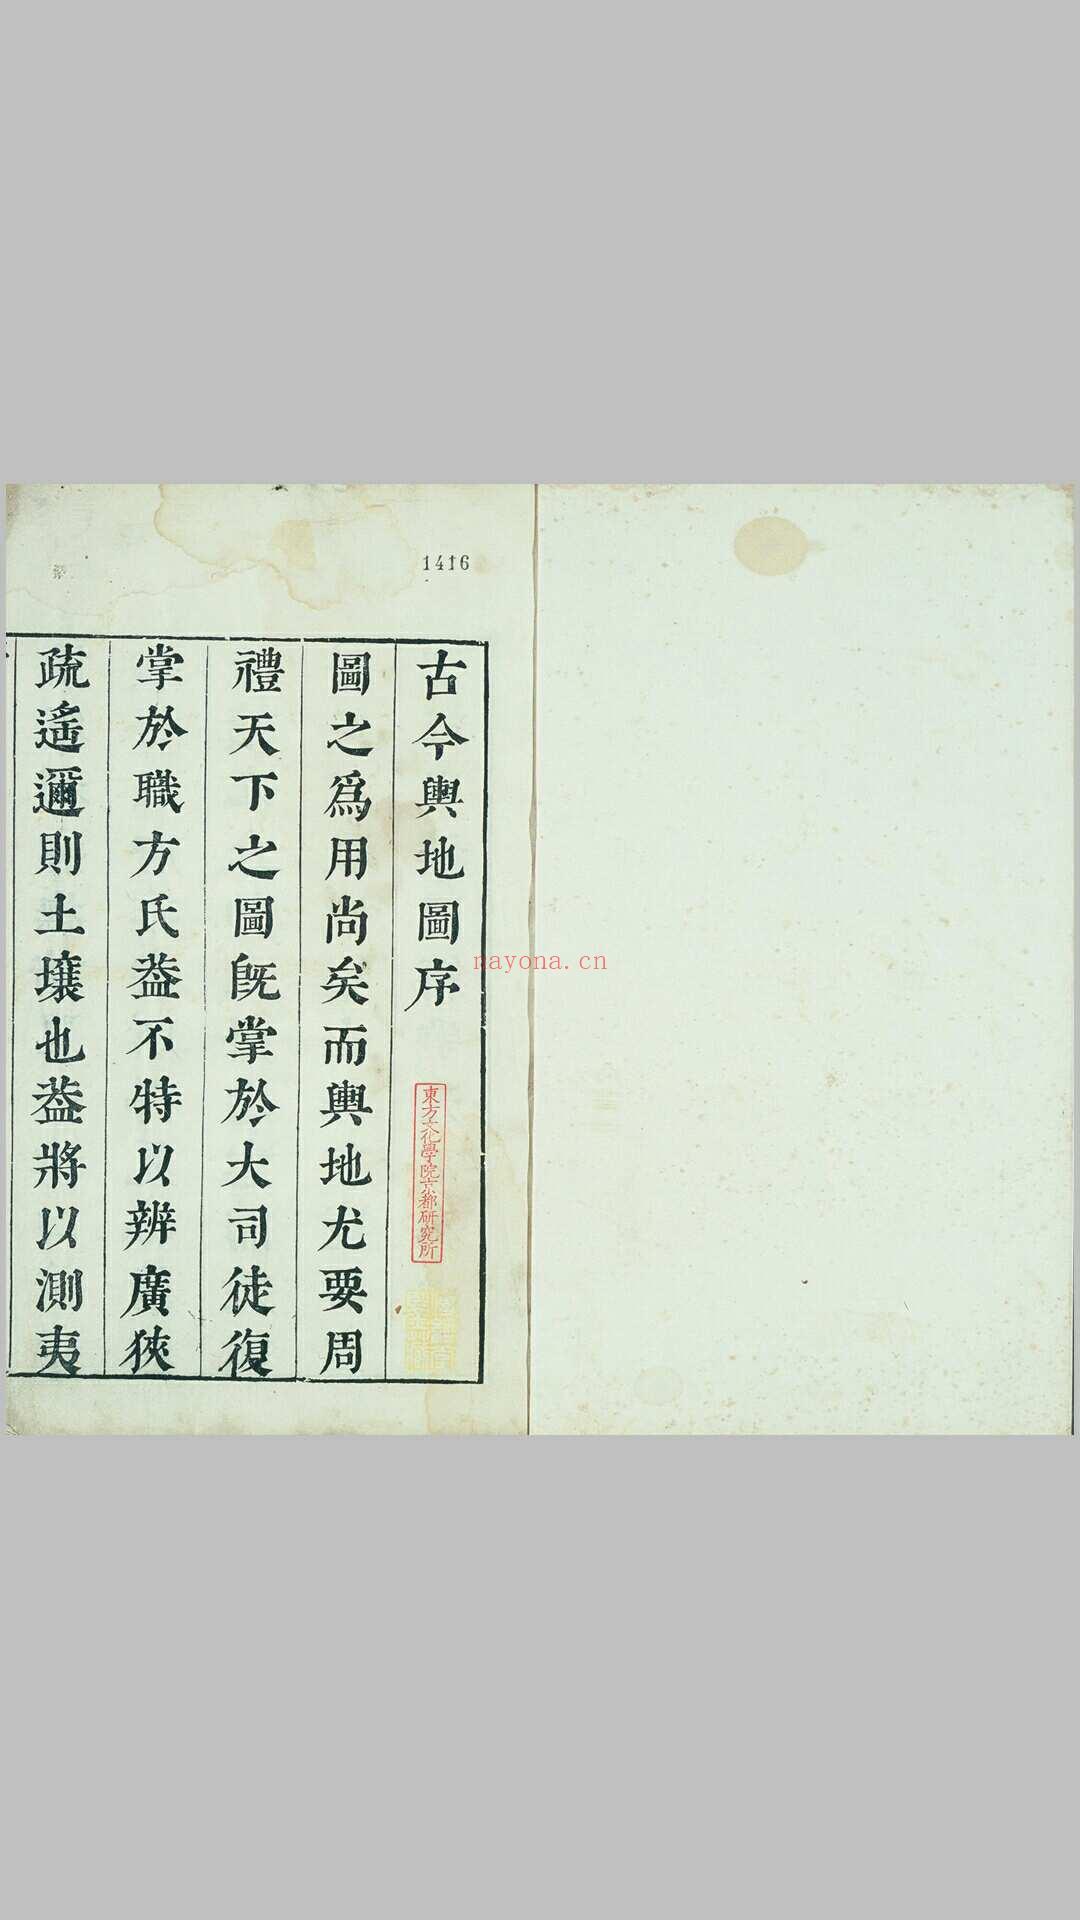 1416
古今輿地圖序
圖之爲用尚矣而輿地尤要周
禮天下之圖旣掌於大司徒復
掌於職方氏葢不特以辨廣狹
疏遙邇則土壤也葢將以測夷
東方文化學院京都研究所
nayona.cn